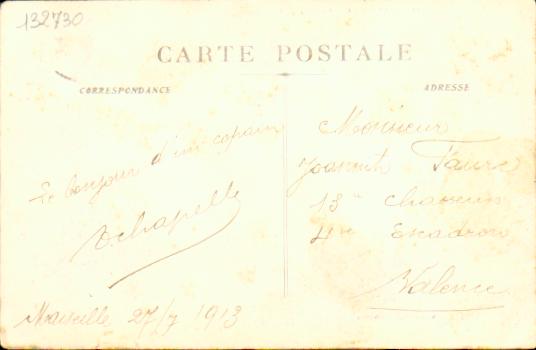 132730
CARTE POSTALE
CORRESPONDANCE
Le bonjour d'un copain
Marseille 27/7 1913
ADRESSE
Monsieur
Faure
13e Chasseurs
4me Escadron
Valence